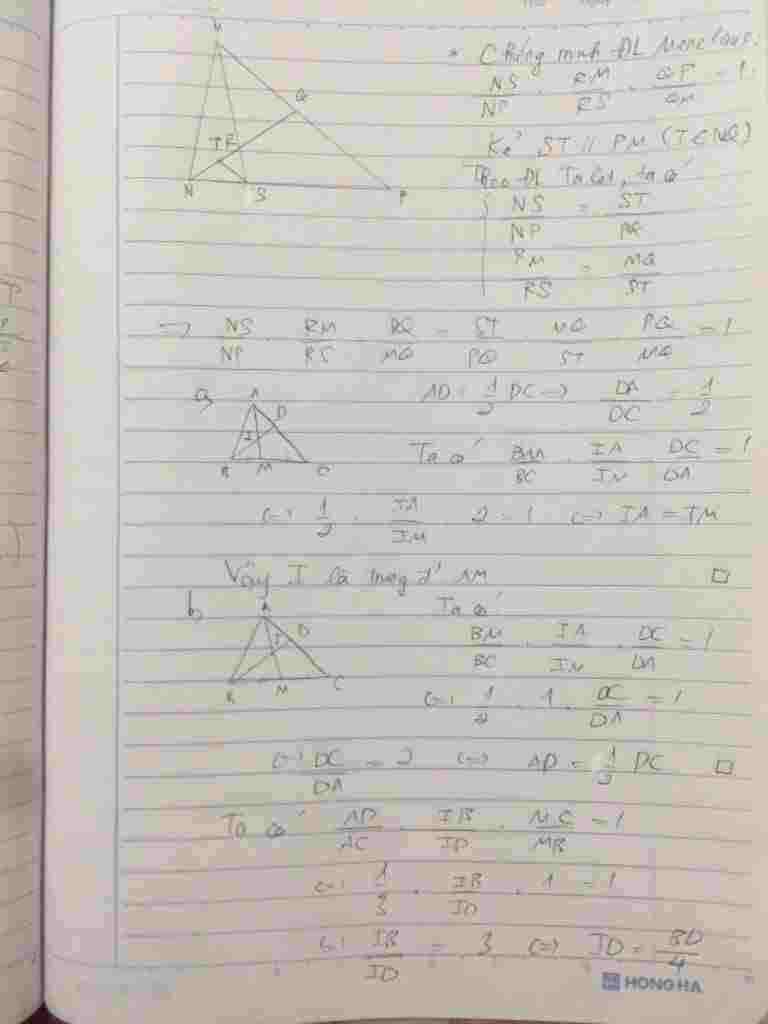 M
Q
T R
N S P
* Chứng minh ĐL Menelaus:
NS/NP . RM/RS . QP/QM = 1
Kẻ ST // PM (T ∈ NQ)
Theo ĐL Talet, ta có
NS/NP = ST/PQ
RM/RS = MQ/ST
=> NS/NP . RM/RS . PQ/MQ = ST/PQ . MQ/ST . PQ/MQ = 1
a, AD = 1/2 DC => DA/DC = 1/2
A D I B M C
Ta có BM/BC . IA/IM . DC/DA = 1
<=> 1/2 . IA/IM . 2 = 1 <=> IA = IM
Vậy I là trung đ' AM □
b, Ta có
A D I B M C
BM/BC . IA/IM . DC/DA = 1
<=> 1/2 . 1 . DC/DA = 1
<=> DC/DA = 2 <=> AD = 1/2 DC □
Ta có AD/AC . IB/ID . MC/MB = 1
<=> 1/3 . IB/ID . 1 = 1
<=> IB/ID = 3 <=> ID = BD/4
HONG HA